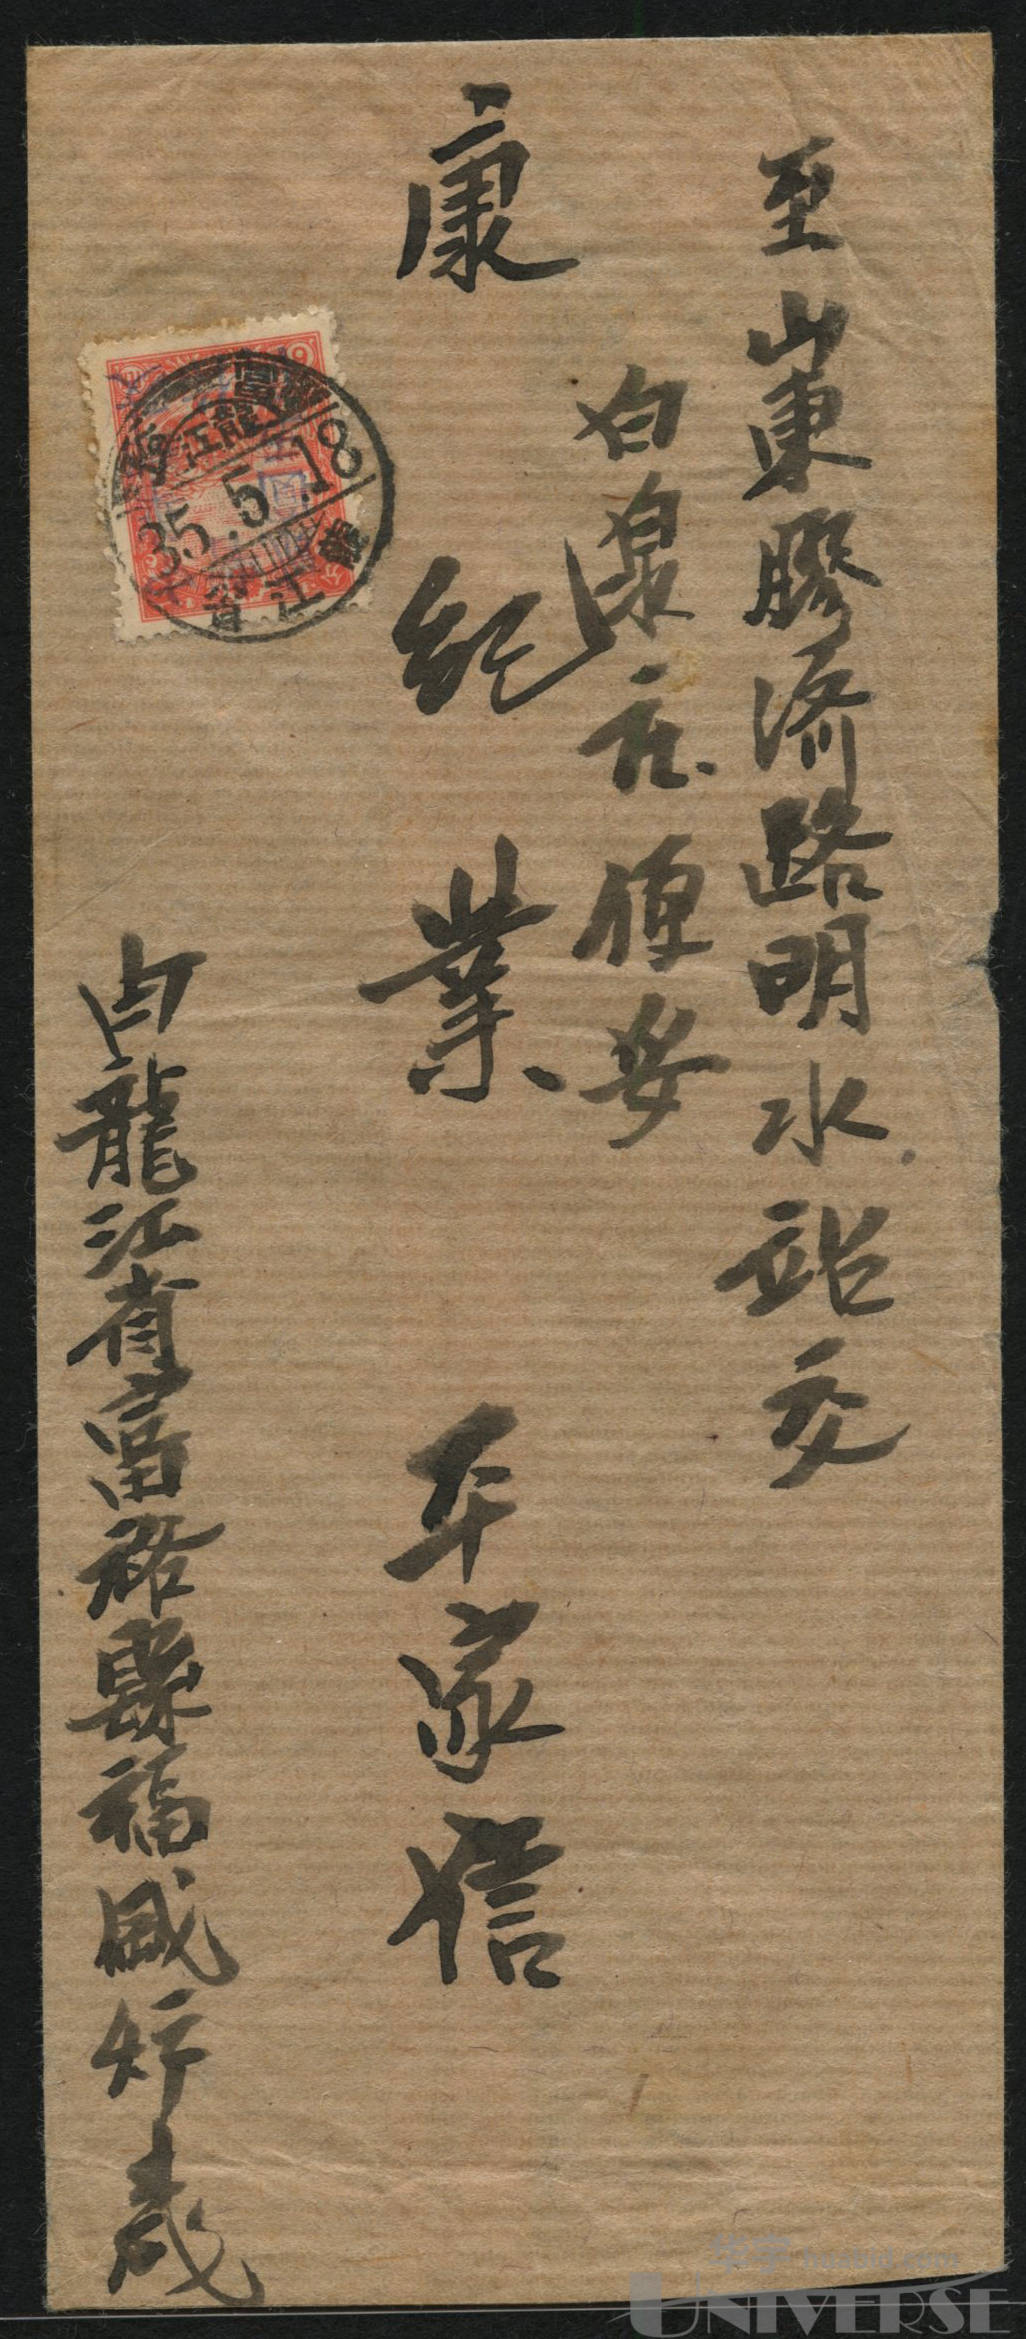 至山東膠濟路明水站交
白泉庄便安
康紀業
平家信
由龍江省富裕縣福盛炉裁
富
龍江
35.5.18
龍江省
UNIVERSE
huabid.com